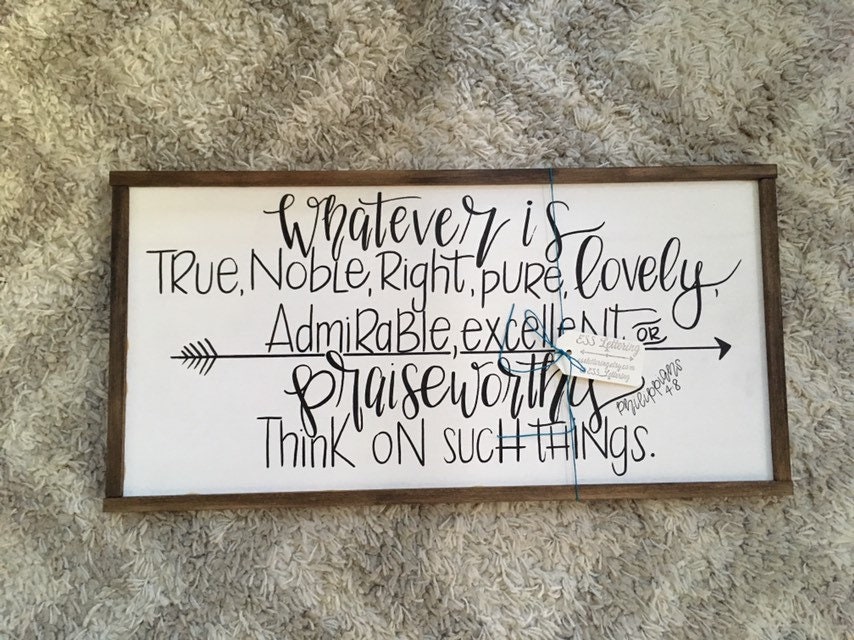 Whatever is
True, Noble, Right, pure, lovely,
Admirable, excellent, or
praiseworthy
Think on such things.
Philippians
4:8
ESS Lettering
ESS Lettering